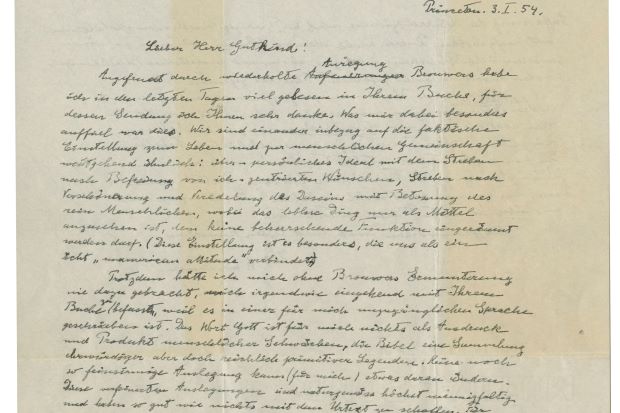 Princeton. 3. I. 54.
Lieber Herr Gutkind!
Angefeuert durch wiederholte Anregung Brouwers habe
ich in den letzten Tagen viel gelesen in Ihrem Buche, für
dessen Sendung ich Ihnen sehr danke. Was mir dabei besonders
auffiel war dies. Wir sind einander inbezug auf die faktische
Einstellung zum Leben und zur menschlichen Gemeinschaft
weitgehend ähnlich: über-persönliches Ideal mit dem Streben
nach Befreiung von ich-zentrierten Wünschen, Streben nach
Verschönerung und Veredelung des Daseins mit Betonung des
rein Menschlichen, wobei das leblose Ding nur als Mittel
anzusehen ist, dem keine beherrschende Funktion eingeräumt
werden darf. (Diese Einstellung ist es besonders, die uns als ein
echt „unamerican attitude" verbindet)
Trotzdem hätte ich mich ohne Brouwers Ermunterung
nie dazu gebracht, mich irgendwie eingehend mit Ihrem
Buche zu befassen, weil es in einer für mich unzugänglichen Sprache
geschrieben ist. Das Wort Gott ist für mich nichts als Ausdruck
und Produkt menschlicher Schwächen, die Bibel eine Sammlung
ehrwürdiger aber doch reichlich primitiver Legenden. Keine noch
so feinsinnige Auslegung kann (für mich) etwas daran ändern.
Diese verfeinerten Auslegungen sind naturgemäss höchst mannigfaltig
und haben so gut wie nichts mit dem Urtext zu schaffen. Für